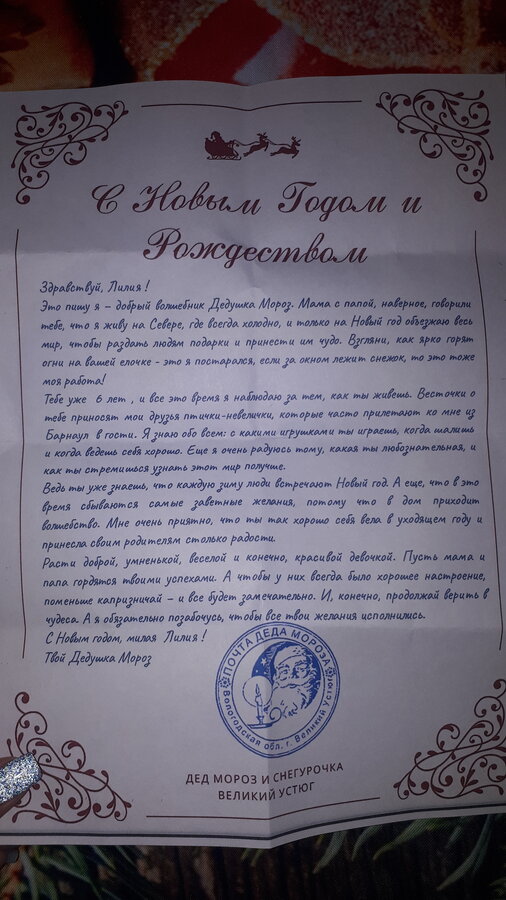 С Новым Годом и
Рождеством
Здравствуй, Лилия !
Это пишу я – добрый волшебник Дедушка Мороз. Мама с папой, наверное, говорили
тебе, что я живу на Севере, где всегда холодно, и только на Новый год объезжаю весь
мир, чтобы раздать людям подарки и принести им чудо. Взгляни, как ярко горят
огни на вашей елочке - это я постарался, если за окном лежит снежок, то это тоже
моя работа!
Тебе уже 6 лет , и все это время я наблюдаю за тем, как ты живешь. Весточки о
тебе приносят мои друзья птички-невелички, которые часто прилетают ко мне из
Барнаул в гости. Я знаю обо всем: с какими игрушками ты играешь, когда шалишь
и когда ведешь себя хорошо. Еще я очень радуюсь тому, какая ты любознательная, и
как ты стремишься узнать этот мир получше.
Ведь ты уже знаешь, что каждую зиму люди встречают Новый год. А еще, что в это
время сбываются самые заветные желания, потому что в дом приходит
волшебство. Мне очень приятно, что ты так хорошо себя вела в уходящем году и
принесла своим родителям столько радости.
Расти доброй, умненькой, веселой и конечно, красивой девочкой. Пусть мама и
папа гордятся твоими успехами. А чтобы у них всегда было хорошее настроение,
поменьше капризничай – и все будет замечательно. И, конечно, продолжай верить в
чудеса. А я обязательно позабочусь, чтобы все твои желания исполнились.
С Новым годом, милая Лилия !
Твой Дедушка Мороз
ПОЧТА ДЕДА МОРОЗА
Вологодская обл. г. Великий Устюг
ДЕД МОРОЗ И СНЕГУРОЧКА
ВЕЛИКИЙ УСТЮГ